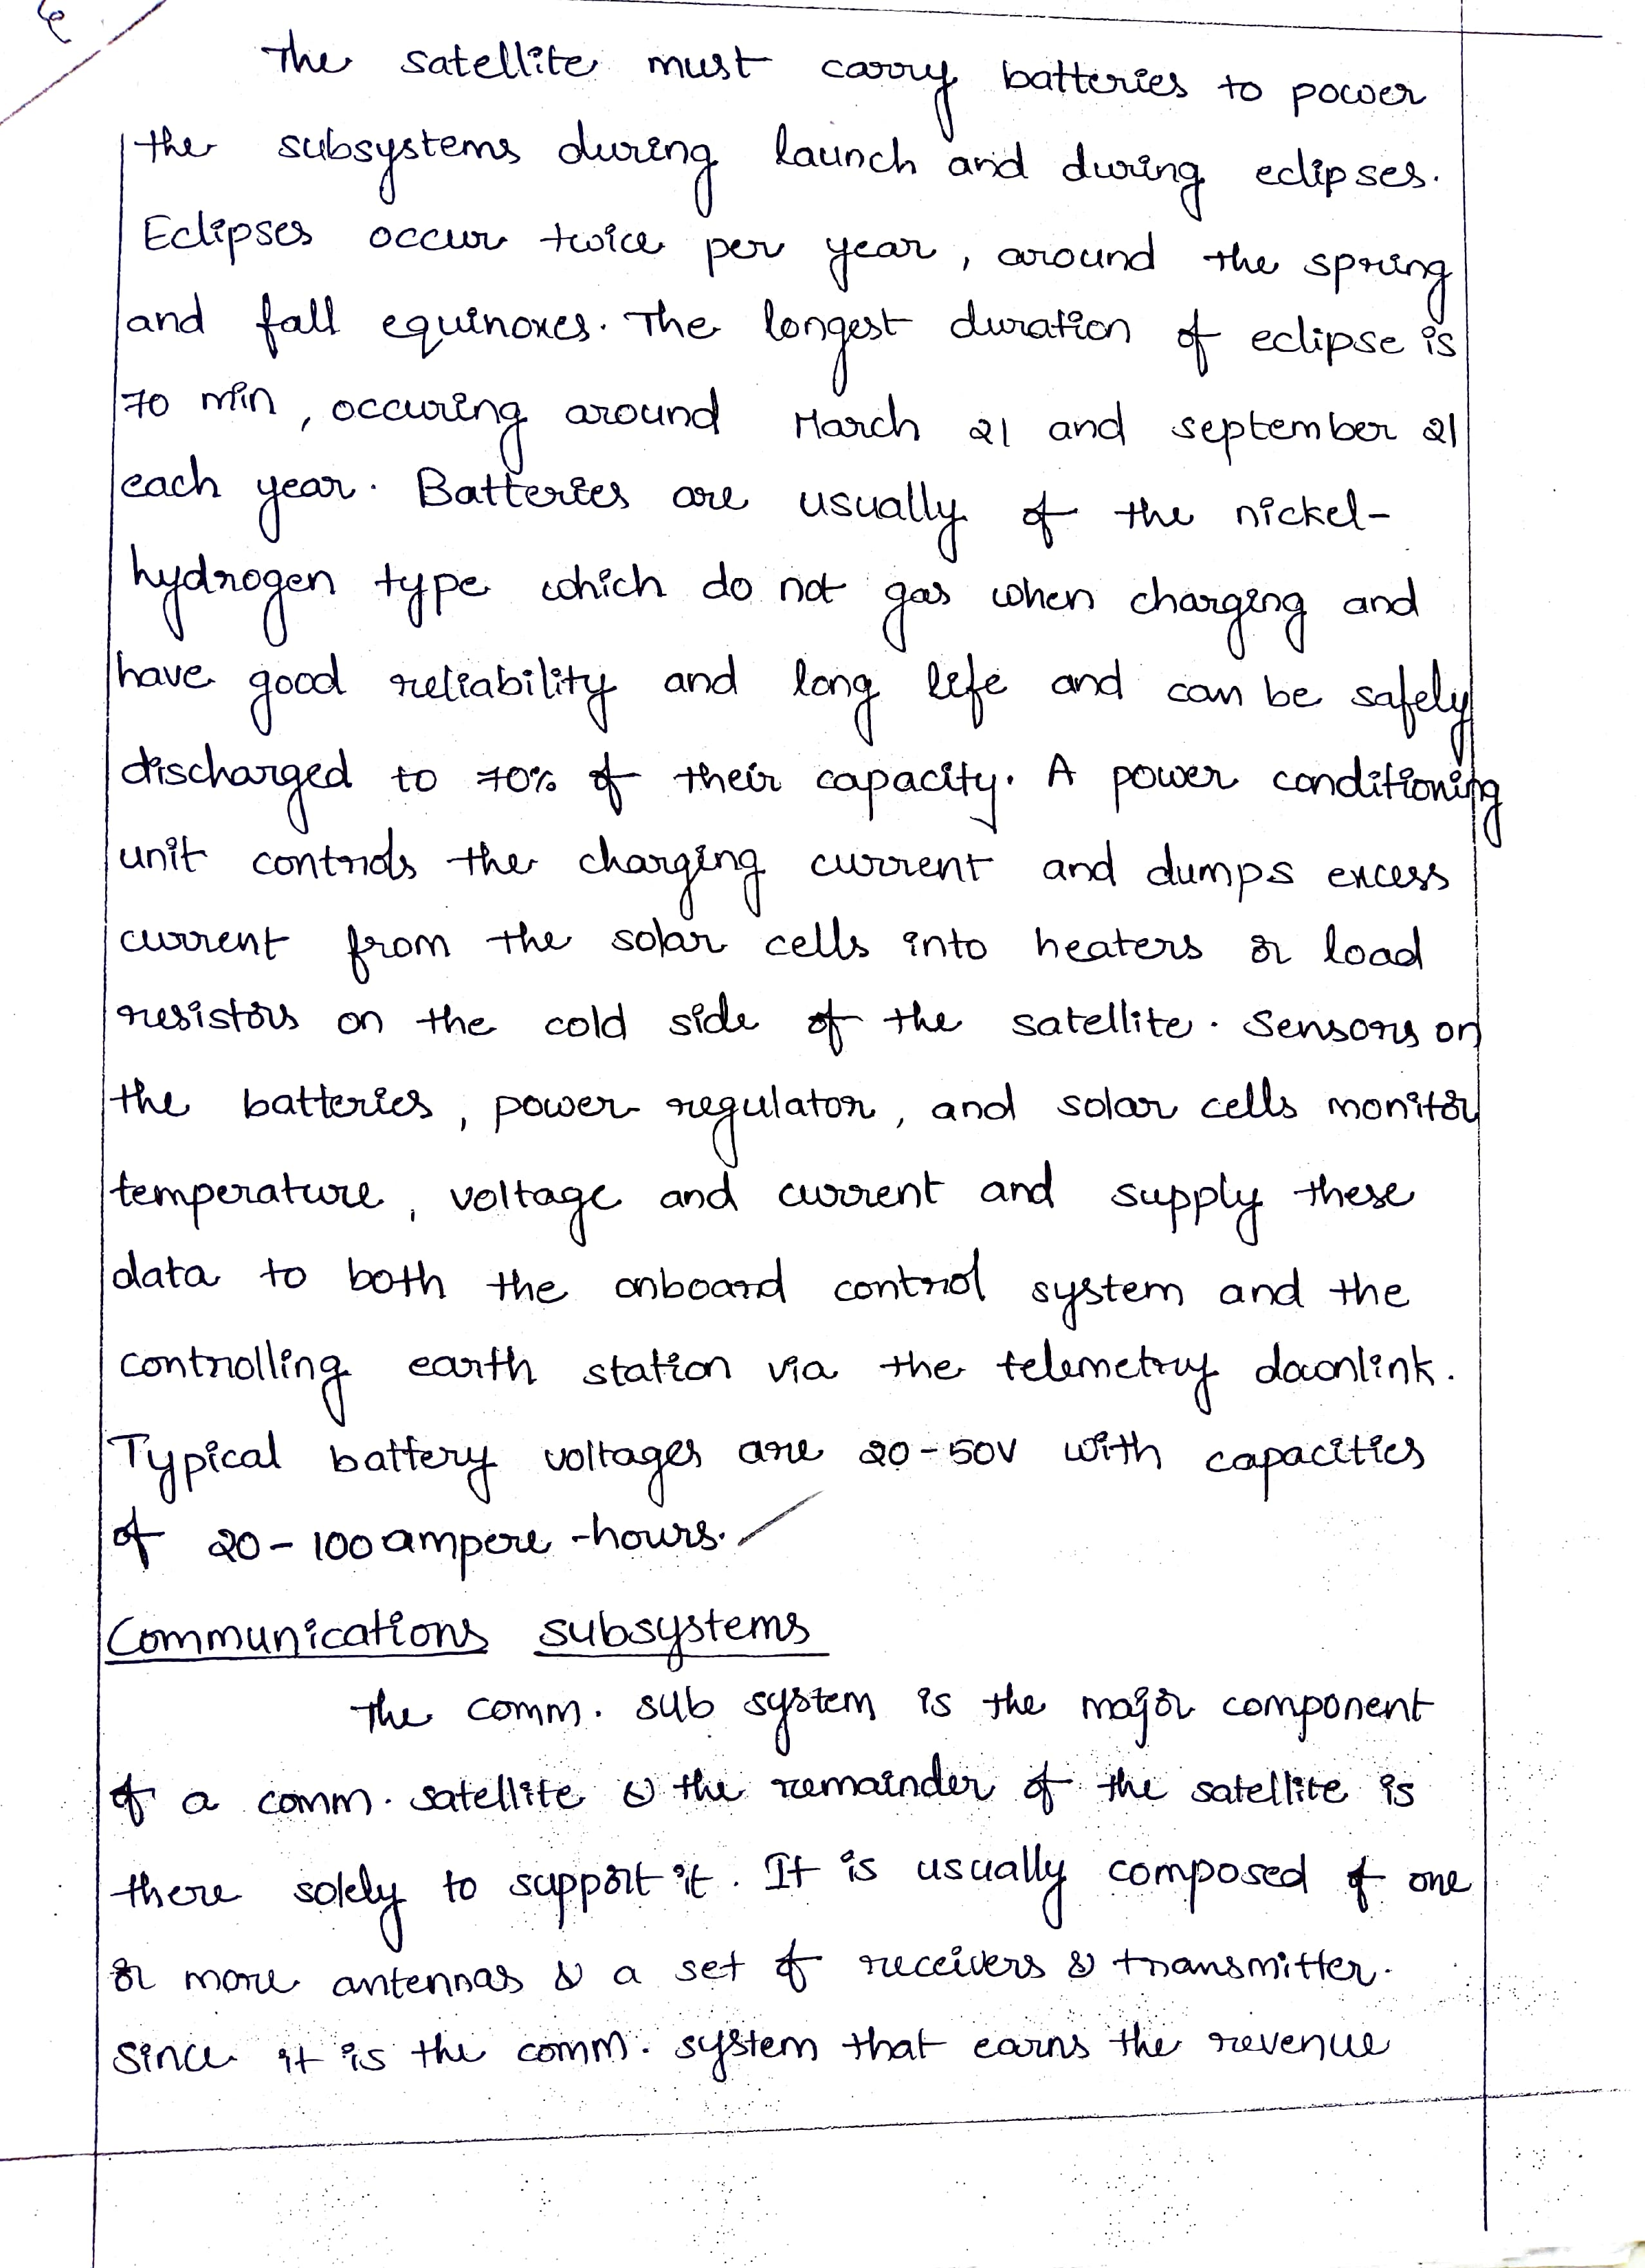 The satellite must carry batteries to power
the subsystems during launch and during eclipses.
Eclipses occur twice per year, around the spring
and fall equinoxes. The longest duration of eclipse is
70 min, occuring around March 21 and september 21
each year. Batteries are usually of the nickel-
hydrogen type which do not gas when charging and
have good reliability and long life and can be safely
discharged to 70% of their capacity. A power conditioning
unit controls the charging current and dumps excess
current from the solar cells into heaters or load
resistors on the cold side of the satellite. Sensors on
the batteries, power regulator, and solar cells monitor
temperature, voltage and current and supply these
data to both the onboard control system and the
controlling earth station via the telemetry downlink.
Typical battery voltages are 20-50V with capacities
of 20-100 ampere-hours.
Communications subsystems
The comm. sub system is the major component
of a comm. satellite & the remainder of the satellite is
there solely to support it. It is usually composed of one
or more antennas & a set of receivers & transmitter.
Since it is the comm. system that earns the revenue